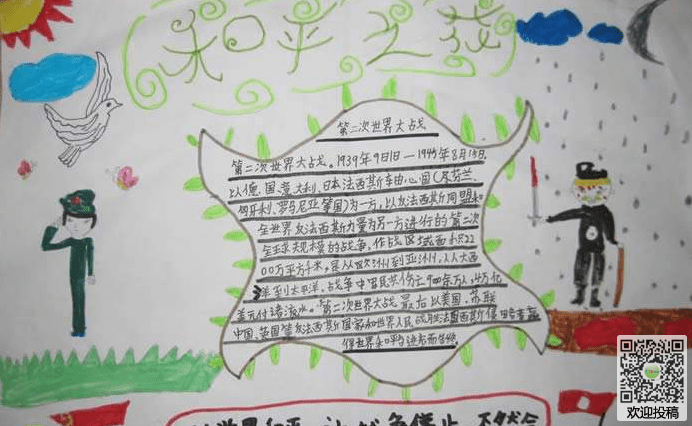 和平之花
第二次世界大战
第二次世界大战。1939年9日1日—1945年8月15日。
以德国、意大利、日本法西斯轴心国(及芬兰、
匈牙利、罗马尼亚等国)为一方,以反法西斯同盟和
全世界反法西斯力量为另一方进行的第二次
全球规模的战争,作战区域面积22
00万平方千米,
洋到太平洋,战争中军民共伤亡9000余万人,4万亿
美元付诸流水。第二次世界大战最后以美国、苏联
中国、英国等反法西斯国家和世界人民战胜法西斯侵略者赢
得世界和平与进步而告终。
欢迎投稿